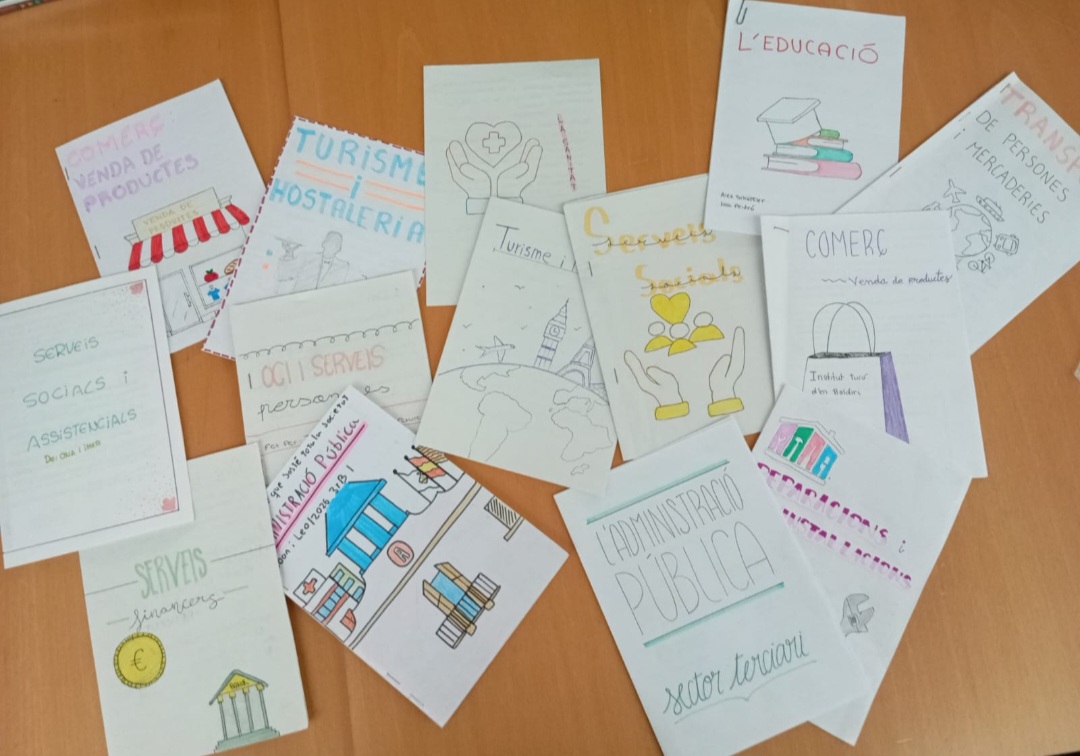 COMERÇ
VENDA DE
PRODUCTES
VENDA DE
PRODUCTES
TURISME
i
HOSTALERIA
LA SANITAT
L'EDUCACIÓ
DE PERSONES
i
MERCADERIES
SERVEIS
SOCIALS i
ASSISTENCIALS
OCI I SERVEIS
personales
Turisme i
Serveis
Socials
COMERÇ
Venda de productes
Institut
d'en Baldiri
SERVEIS
financers
€
PÚBLICA
3r B
L'ADMINISTRACIÓ
PÚBLICA
sector terciari
REPARACIONS i
INSTAL·LACIONS